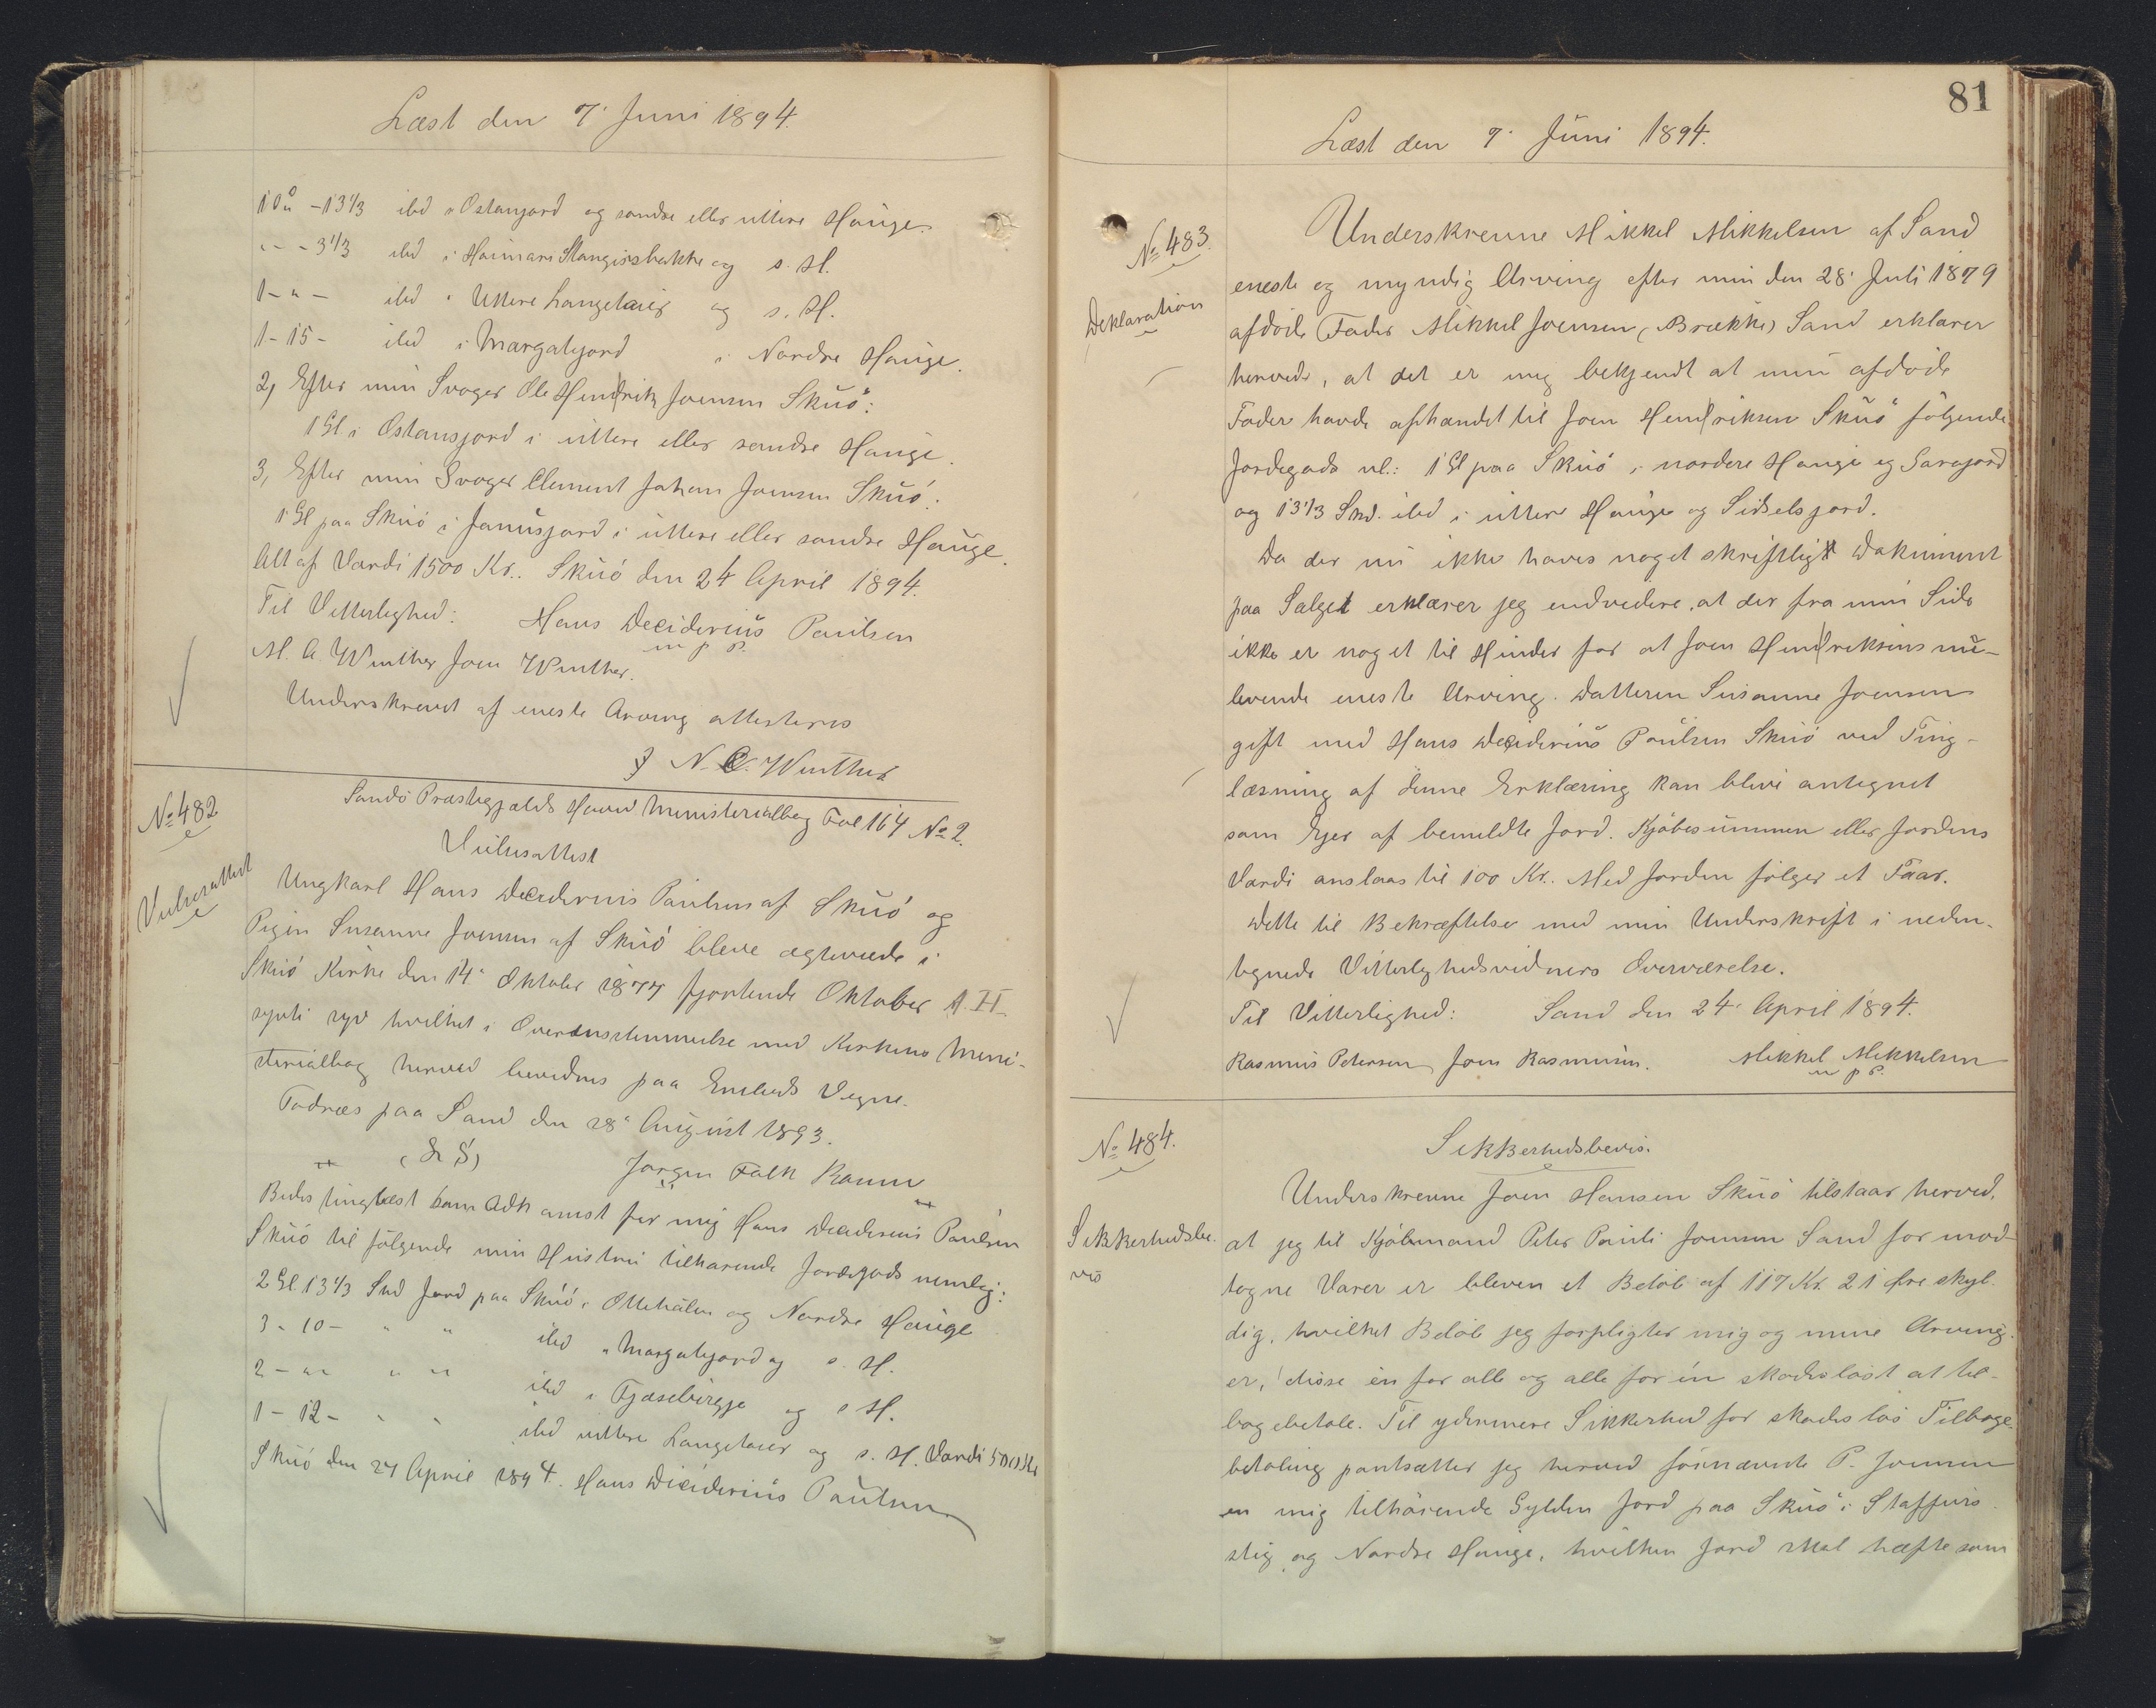 Læst den 7' Juni 1894.
ibd " Østanjord og søndre eller uttere Hauge.
" - - 3 1/3 ibd i Heimari Stangisbakke og s. H.
1 - " - ibd " Uttere Langeteier og s. H.
1 - 15 - ibd i Margatejord i Nordre Hauge.
2, Efter min Svoger Ole Hendrik Joensen Skuö:
1 Gl i Østansjord i uttere eller søndre Hauge.
3, Efter min Svoger Clement Johan Joensen Skuö:
1 Gl paa Skuö i Janusjord i uttere eller søndre Hauge.
Alt af Værdi 1500 Kr.. Skuö den 24 April 1894.
Til Vitterlighed: Hans Deciderius Paulsen
m. p. P.
M. A. Winther Joen Winther.
Underskrevet af eneste Arving attesteres
J N. C. Winther
No 482
Vielsesattest
Sandö Præstegjælds Hoved Ministerialbog Fol 164 No 2.
Vielsesattest
Ungkarl Hans Deciderius Paulsen af Skuö og
Pigen Susanne Joensen af Skuö bleve ægteviede i
Skuö Kirke den 14' Oktober 1877 fjortende Oktober A. H.
syvti syv hvilket i Overensstemmelse med Kirkens Mini-
sterialbog herved bevidnes paa Embeds Vegne.
Todnæs paa Sand den 28' August 1893.
(L S) Jørgen Falk Rønne
Bedes tinglæst som Adkomst for mig Hans Deciderius Paulsen
Skuö til følgende min Hustru tilhørende Jordegods nemlig:
2 Gl. 13 1/3 Skd Jord paa Skuö i Ottehálm og Nordre Hauge
3 - 10 - " " ibd " Margatejord og s. H.
2 - " - " " ibd i Tjæsebirgje og s H.
1 - 12 - " " ibd uttere Langeteier og s. H. Værdi 500 Kr
Skuö den 24 April 1894. Hans Deciderius Paulsen
81
Læst den 7' Juni 1894.
No 483.
Deklaration
Underskrevne Mikkel Mikkelsen af Sand
eneste og myndig Arving efter min den 28' Juli 1879
afdøde Fader Mikkel Joensen (Brække) Sand erklærer
herved, at det er mig bekjendt at min afdøde
Fader havde afhændet til Joen Hendriksen Skuö følgende
Jordegods nl.: 1 Gl paa Skuö i nordere Hauge og Sarajord
og 13 1/3 Skd. ibd i uttere Hauge og Sidselsjord.
Da der nu ikke haves noget skriftligt Dokument
paa Salget erklærer jeg endvidere, at der fra min Side
ikke er noget til Hinder for at Joen Hendriksens nu-
levende eneste Arving. Datteren Susanne Joensen
gift med Hans Deciderius Paulsen Skuö ved Ting-
læsning af denne Erklæring kan blive antegnet
som Ejer af bemeldte Jord. Kjøbesummen eller Jordens
Værdi anslaas til 100 Kr.. Med Jorden følger et Faar.
Dette til Bekræftelse med min Underskrift i neden-
tegnede Vitterlighedsvidners Overværelse.
Til Vitterlighed: Sand den 24' April 1894.
Rasmus Petersen Joen Rasmusen. Mikkel Mikkelsen
m p P.
No 484.
Sikkerhedsbevis.
Sikkerhedsbe-
vis
Underskrevne Joen Hansen Skuö tilstaar herved,
at jeg til Kjøbmand Peter Pauli Joensen Sand for mod-
tagne Varer er bleven et Beløb af 117 Kr. 21 Øre skyl-
dig, hvilket Beløb jeg forpligter mig og mine Arving-
er, disse en for alle og alle for én skadesløst at til-
bagebetale. Til ydermere Sikkerhed for skadesløs Tilbage-
betaling pantsætter jeg herved fornævnte P. Joensen
en mig tilhørende Gylden Jord paa Skuö i Staffuris-
stig og Nordre Hauge, hvilken Jord skal hæfte som